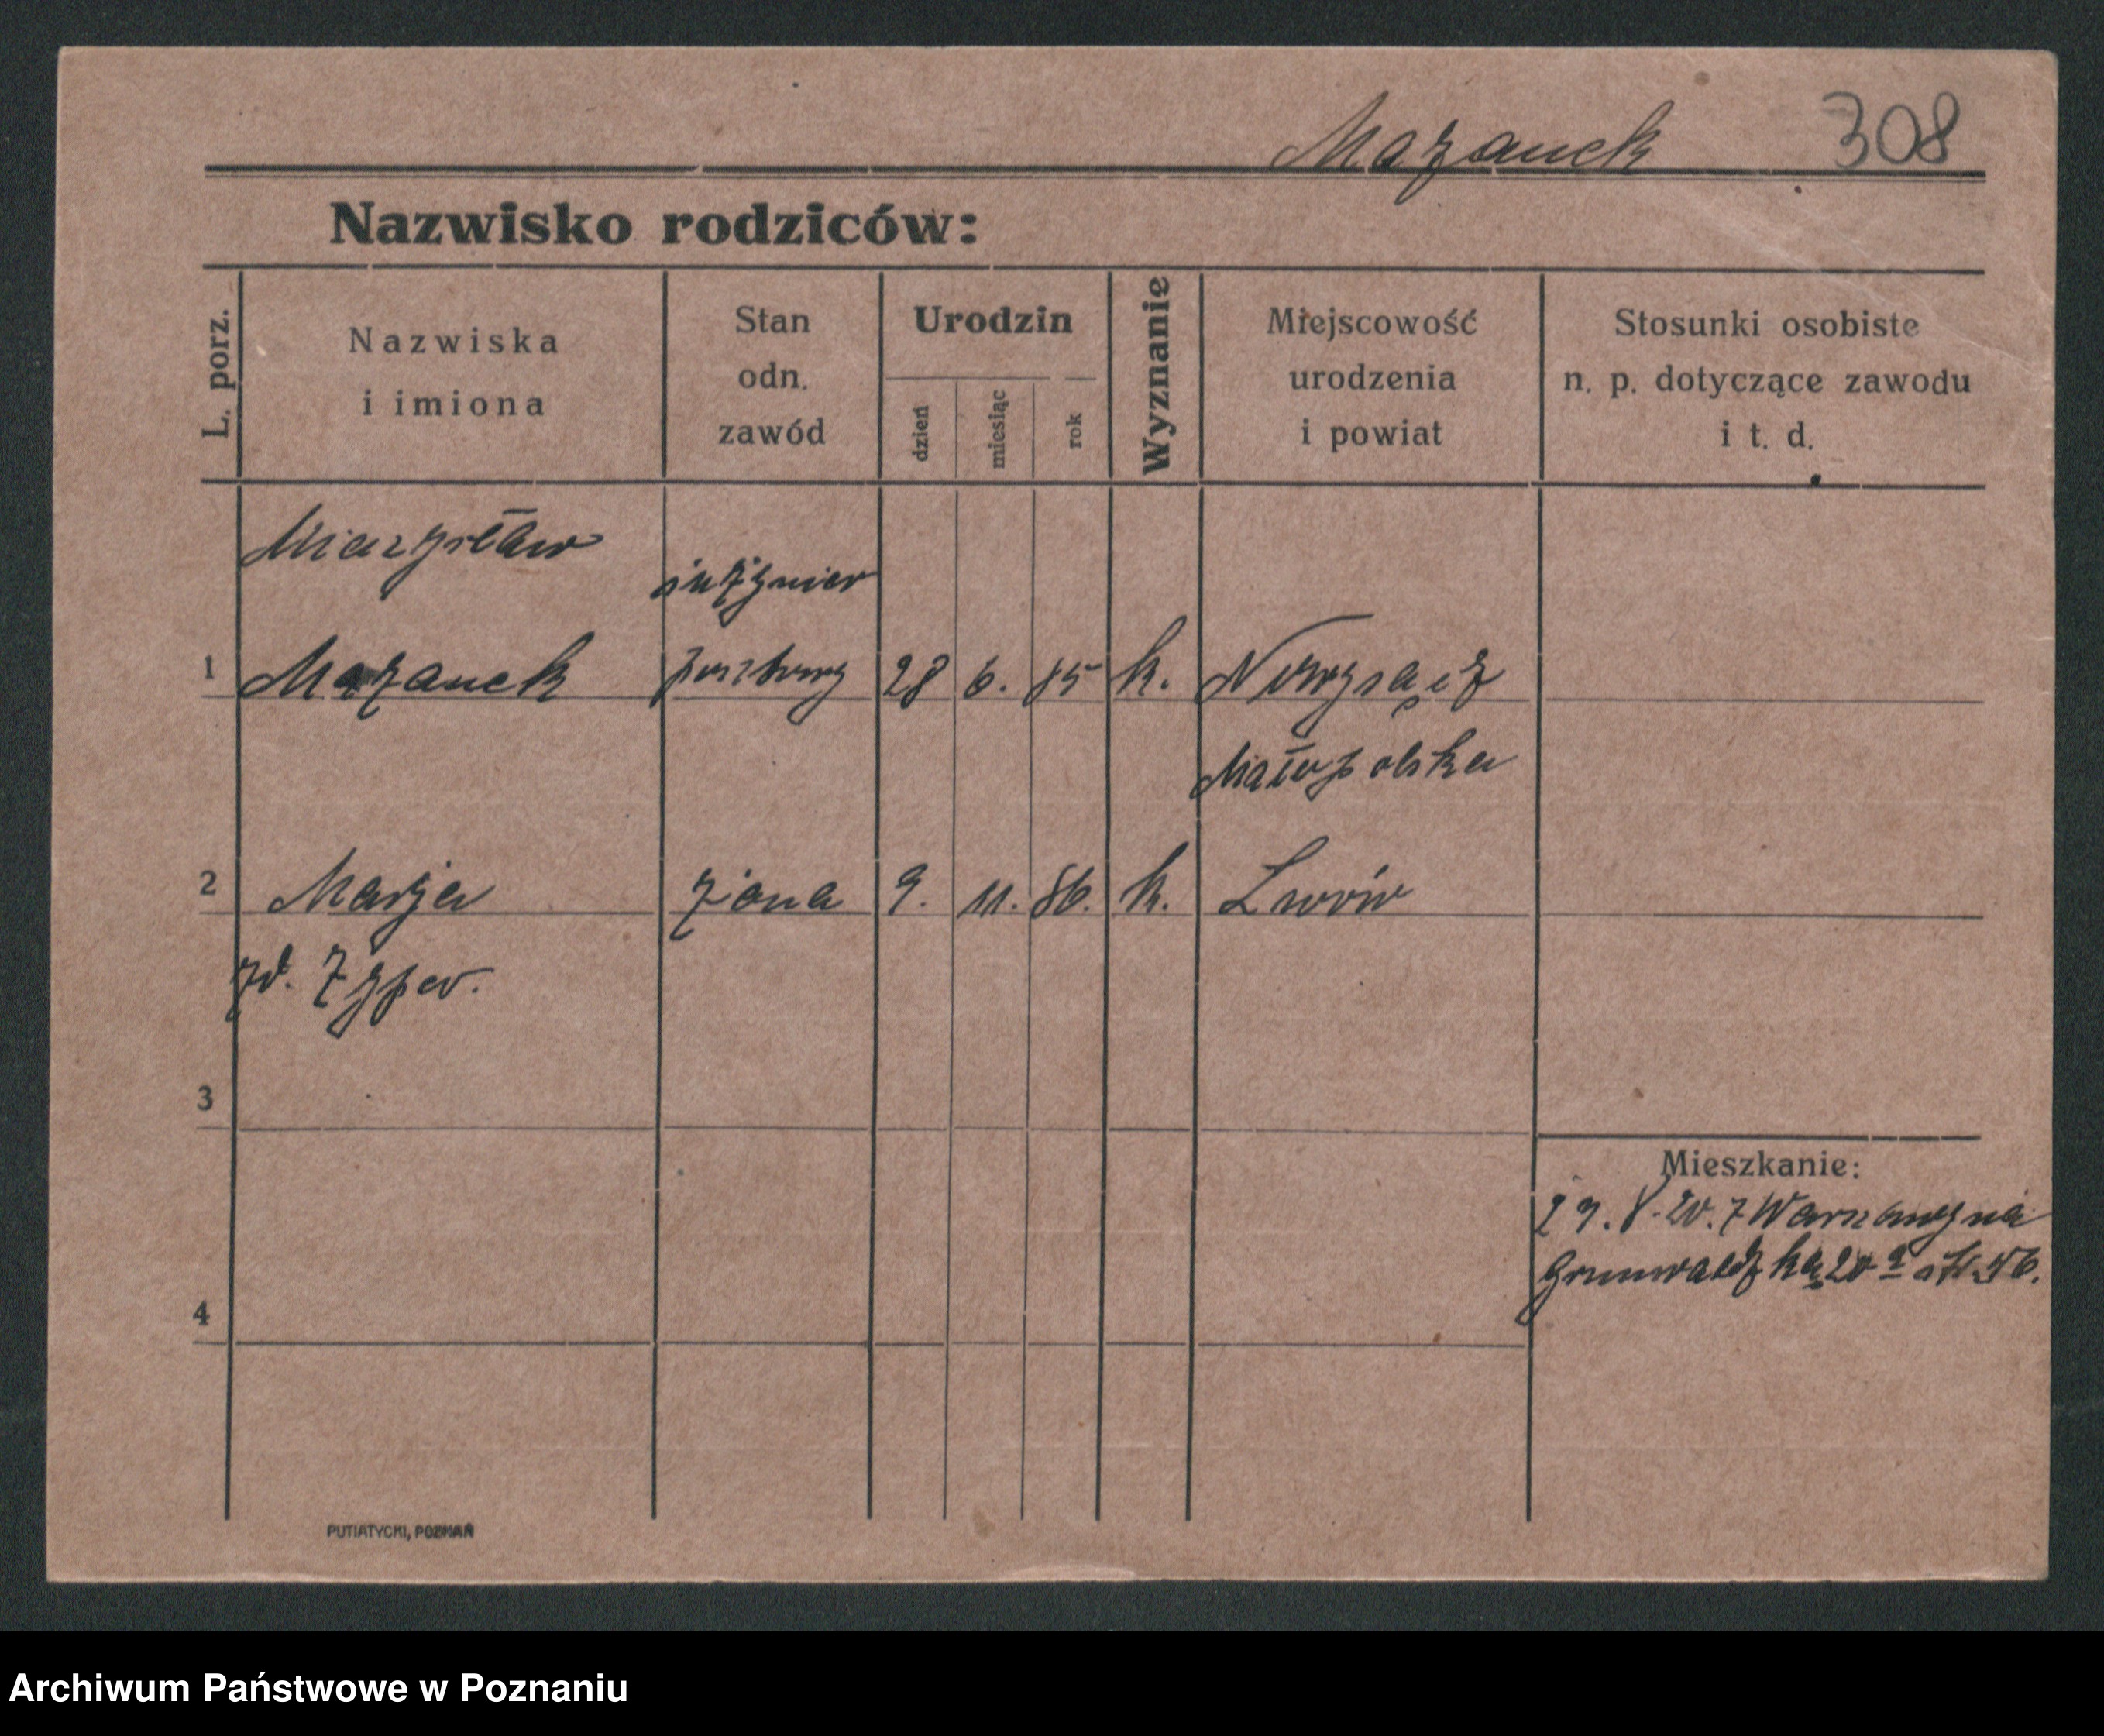 Mazanek 308
Nazwisko rodziców:
L. porz.
Nazwiska
i imiona
Stan
odn.
zawód
Urodzin
dzień
miesiąc
rok
Wyznanie
Miejscowość
urodzenia
i powiat
Stosunki osobiste
n. p. dotyczące zawodu
i t. d.
Mieczysław
inżynier
1 Mazanek pocztowy 28 6. 85 k. Nowysącz
Małopolska
2 Marja żona 9. 11. 86. k. Lwów
zd. Zyper.
3
Mieszkanie:
29. V. 20. z Warszawy na
Grunwaldzką 20 a
4
PUTIATYCKI, POZNAŃ
Archiwum Państwowe w Poznaniu